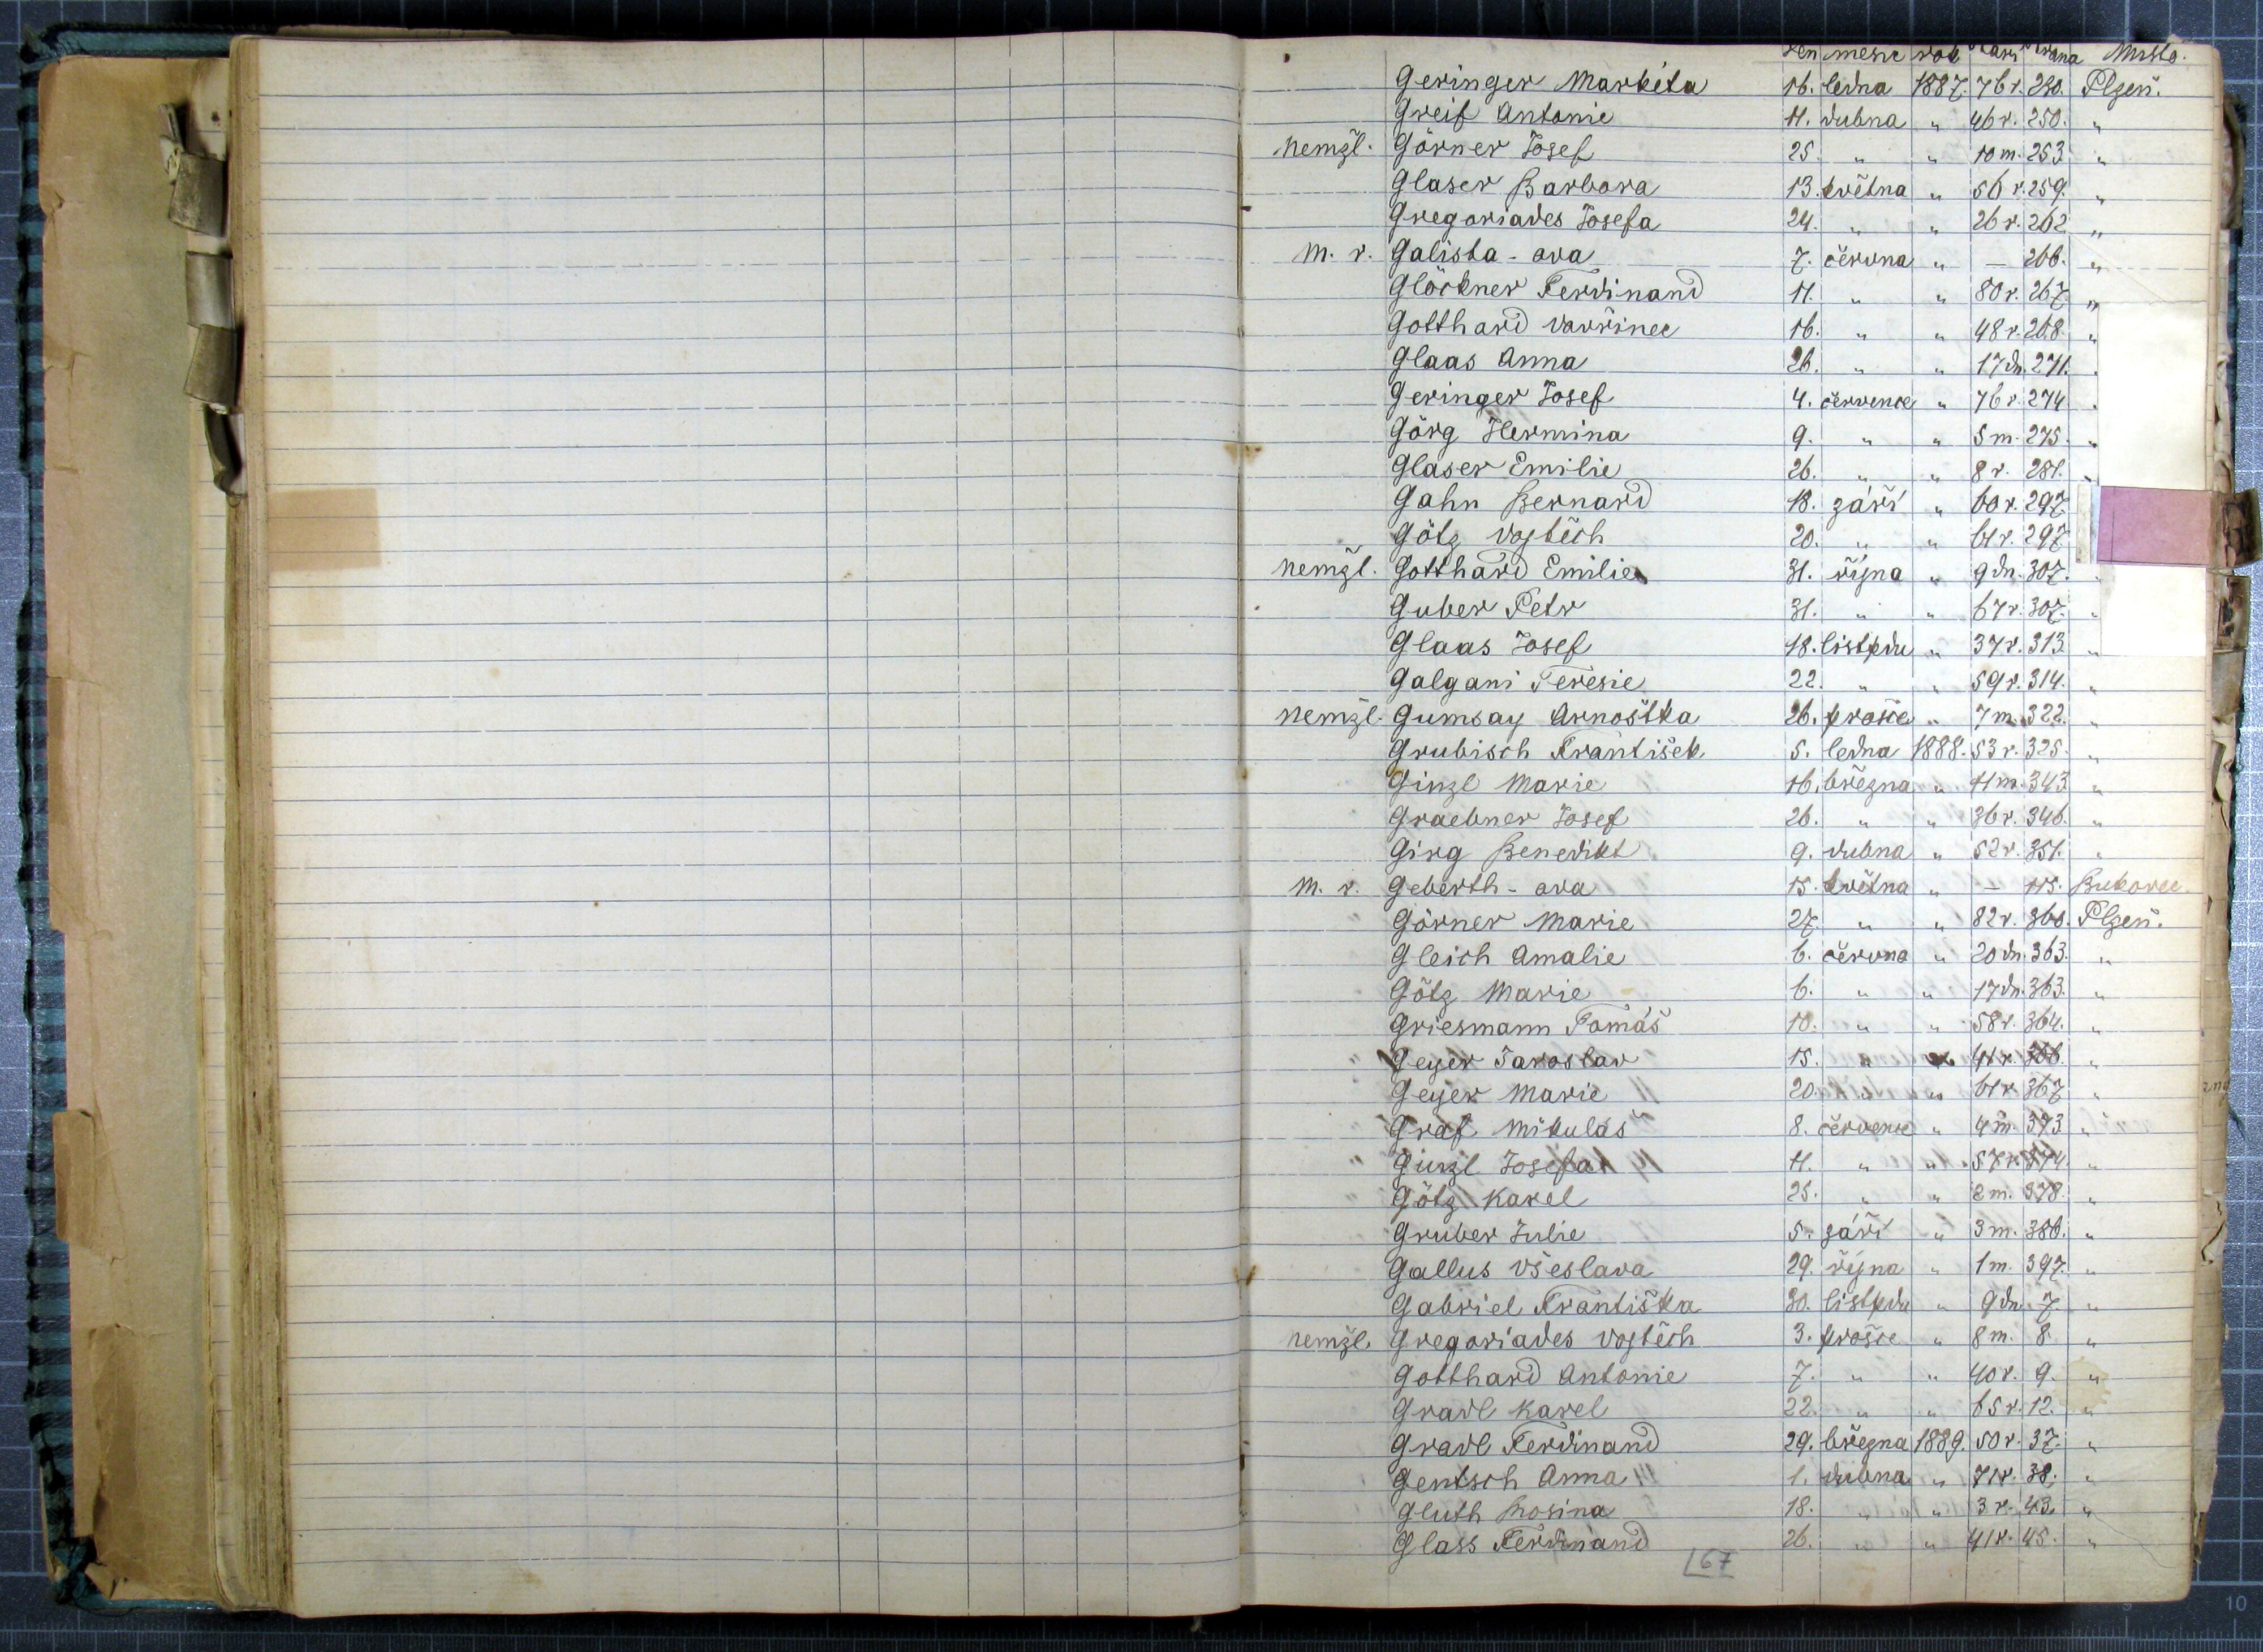 den měsíc rok stáří strana Místo.
Geringer Markéta 16. ledna 1887. 76 r. 230. Plzeň.
Greif Antonie 11. dubna " 46 r. 250. "
nemžl. Görner Josef 25. " " 10 m. 253. "
Glaser Barbora 13. května " 56 r. 259. "
Gregoriades Josefa 24. " " 26 r. 262 "
m. r. Galista - ova 7. června " — 266. "
Glöckner Ferdinand 11. " " 80 r. 267. "
Gotthard Vavřinec 16. " " 48 r. 268. "
Glaas Anna 26. " " 17 dn. 271.
Geringer Josef 4. července " 76 r. 274
Görg Hermina 9. " " 5 m. 275. "
Glaser Emilie 26. " " 8 r. 281. "
Gahn Bernard 18. září " 60 r. 297.
Götz Vojtěch 20. " " 61 r. 297
nemžl. Gotthard Emilie 31. října " 9 dn. 307. "
Guber Petr 31. " " 67 r. 307. "
Glaas Josef 18. listpdu " 37 r. 313. "
Galgani Teresie 22. " " 59 r. 314. "
nemžl. Gumsay Arnoštka 26. prosce " 7 m. 322. "
Grubisch František 5. ledna 1888. 53 r. 325. "
Ginzl Marie 16. března " 11 m. 343 "
Graebner Josef 26. " " 36 r. 346. "
Girg Benedikt 9. dubna " 52 r. 351. "
m. r. Geberth - ova 15. května " — 115. Bukovec.
Görner Marie 27. " " 82 r. 360. Plzeň.
Gleich Amalie 6. června " 20 dn. 363. "
Götz Marie 6. " " 17 dn. 363. "
Griesmann Tomáš 10. " " 58 r. 364. "
Geyer Jaroslav 15. " " 41 r. 366. "
Geyer Marie 20. " " 61 r. 367 "
Graf Mikuláš 8. července " 4 m. 373 "
Ginzl Josefa 11. " " 57 r. 374. "
Götz Karel 25. " " 2 m. 378. "
Gruber Julie 5. září " 3 m. 386. "
Gallus Věeslava 29. října " 1 m. 397. "
Gabriel Františka 30. listpdu " 9 dn. 7 "
nemžl. Gregoriades Vojtěch 3. prosce " 8 m. 8. "
Gotthard Antonie 7. " " 40 r. 9. "
Gradl Karel 22. " " 65 r. 12. "
Gradl Ferdinand 29. března 1889. 50 r. 37. "
Gentsch Anna 1. dubna " 71 r. 38. "
Gluth Rosina 18. " " 3 r. 43. "
Glass Ferdinand 26. " " 41 r. 45. "
67
9 10